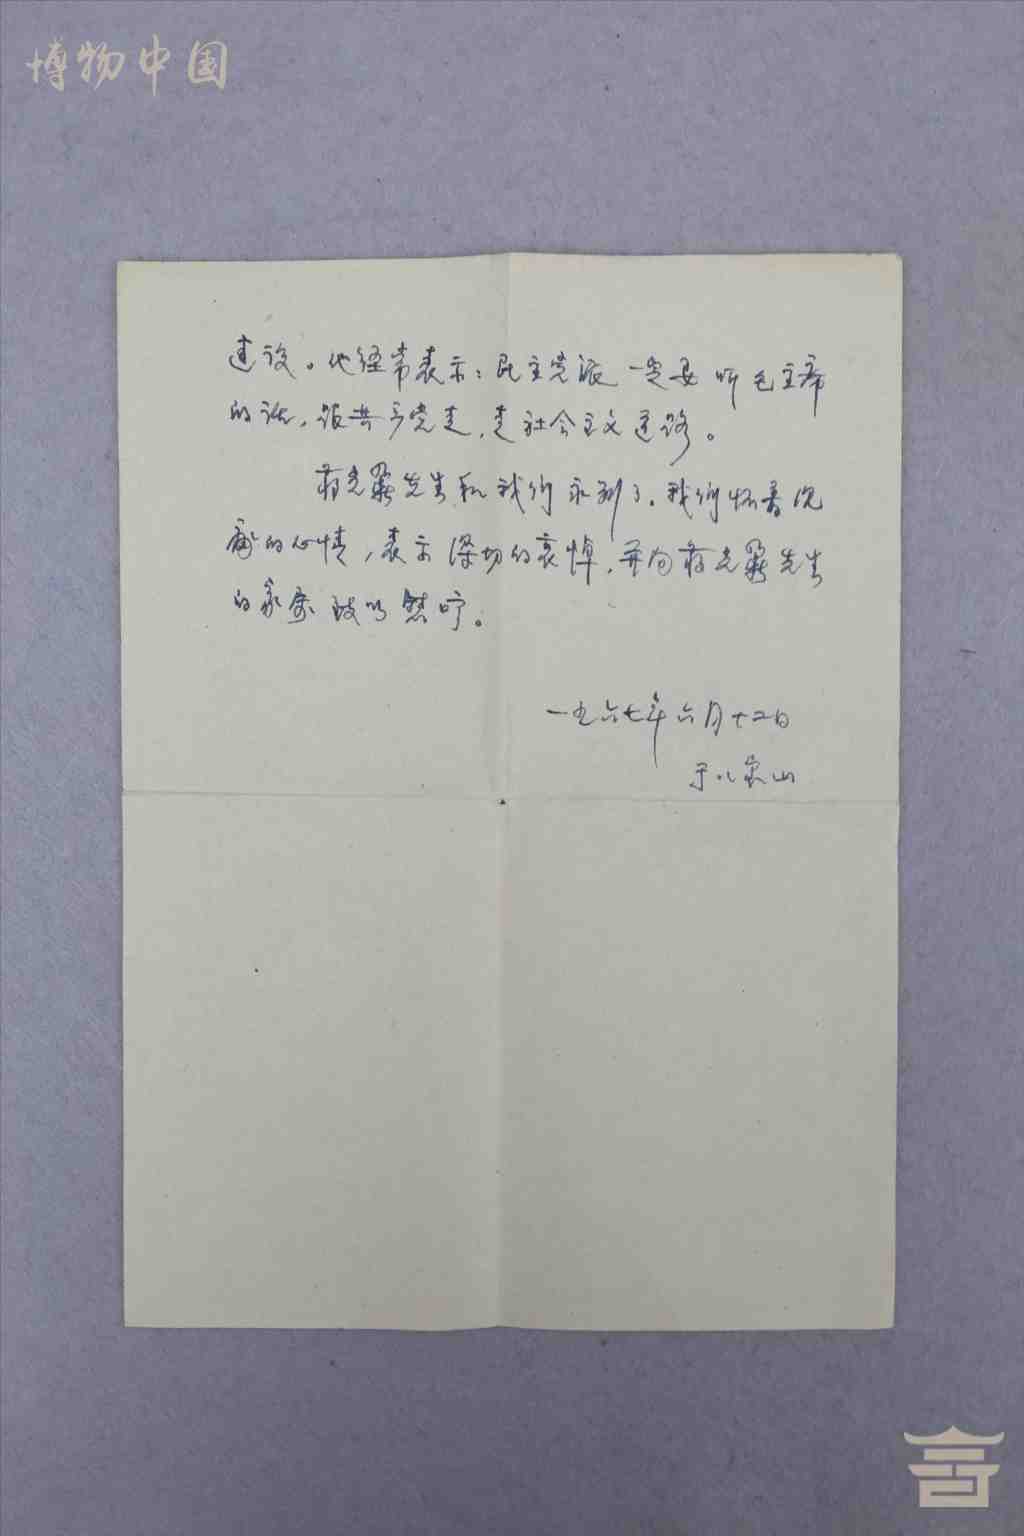 博物中国
建设。他经常表示：民主党派一定要听毛主席
的话，跟共产党走，走社会主义道路。
蒋光鼐先生和我们永别了。我们怀着沉
痛的心情，表示深切的哀悼，并向蒋光鼐先生
的家属致以慰唁。
一九六七年六月十二日
于八宝山